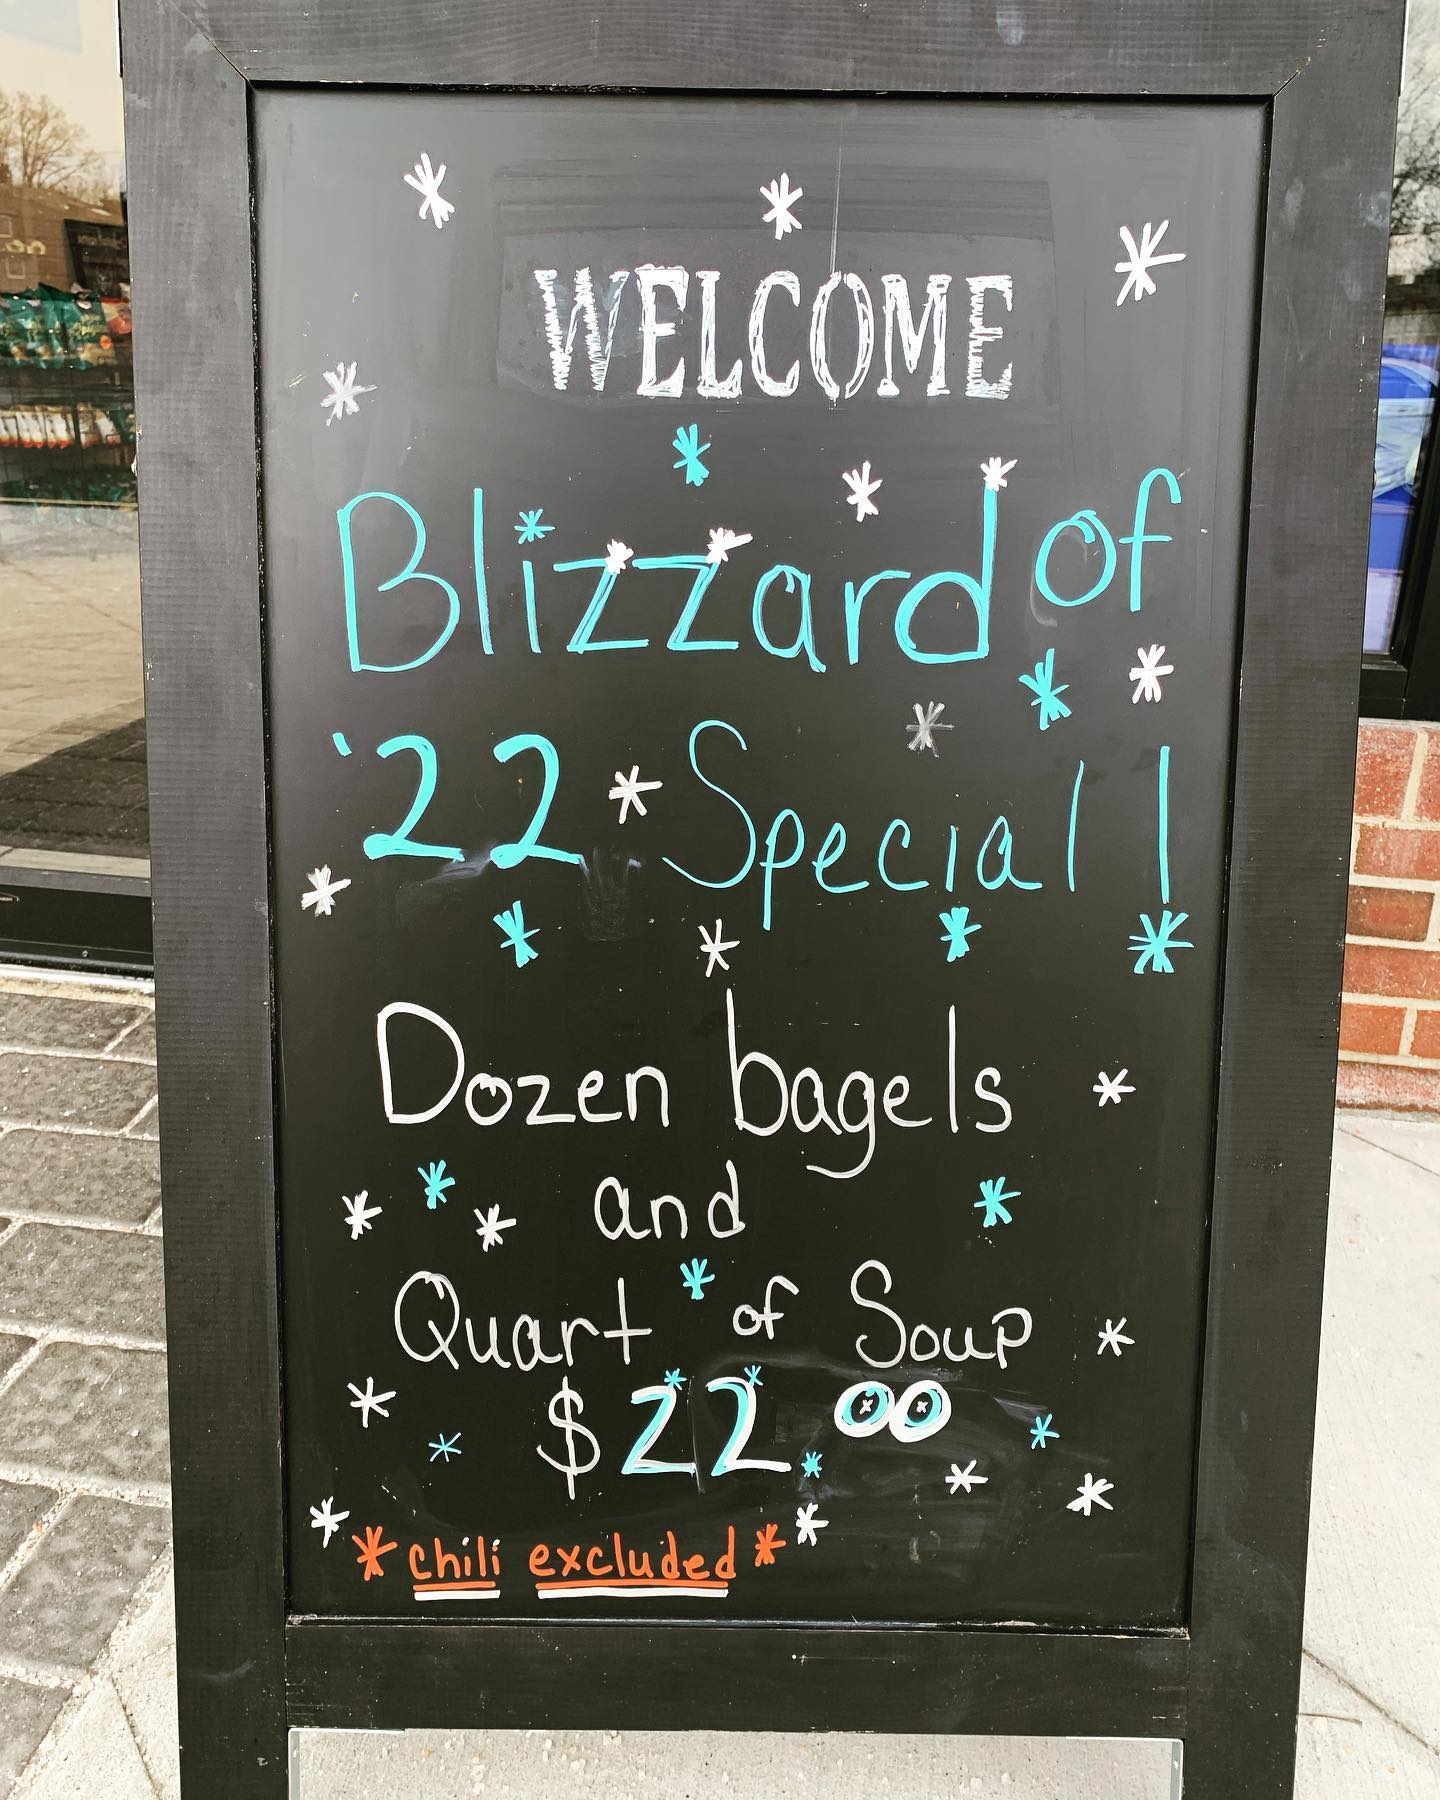 WELCOME
Blizzard of
'22 Special!
Dozen bagels
and
Quart of Soup
$22.00
*chili excluded*